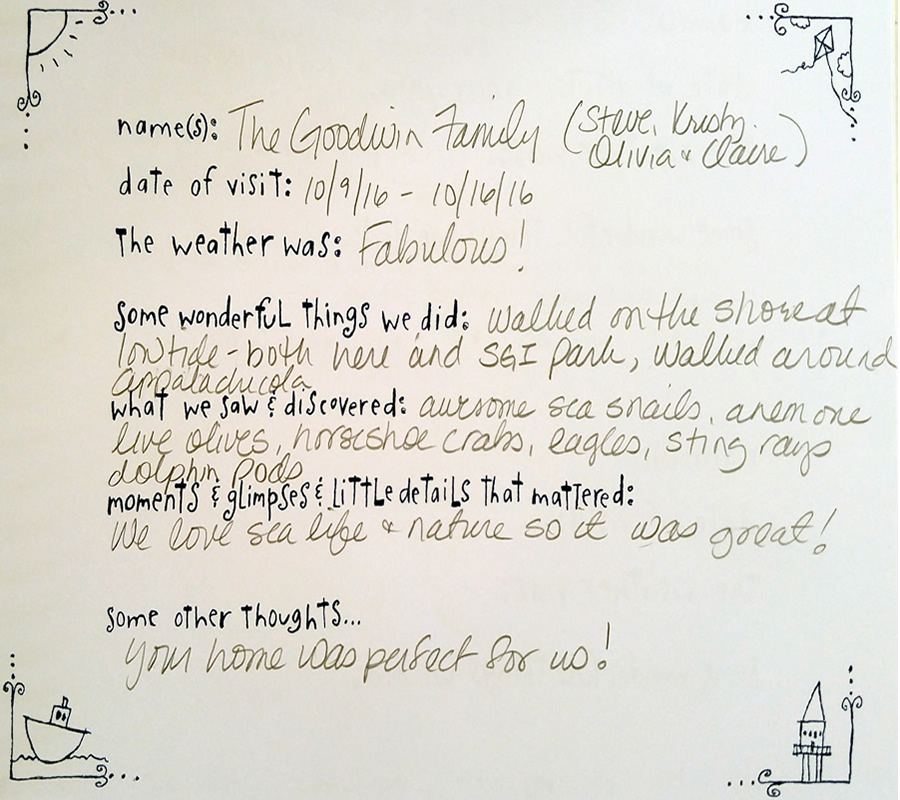 name(s): The Goodwin Family (Steve, Kristy,
Olivia & Claire)
date of visit: 10/9/16 - 10/16/16
The weather was: Fabulous!
some wonderful things we did: walked on the shore at
low tide - both here and SGI park, walked around
Appalachicola
what we saw & discovered: awesome sea snails, anemone
live olives, horseshoe crabs, eagles, sting rays
dolphin pods
moments & glimpses & little details that mattered:
We love sea life & nature so it was great!
some other thoughts...
Your home was perfect for us!